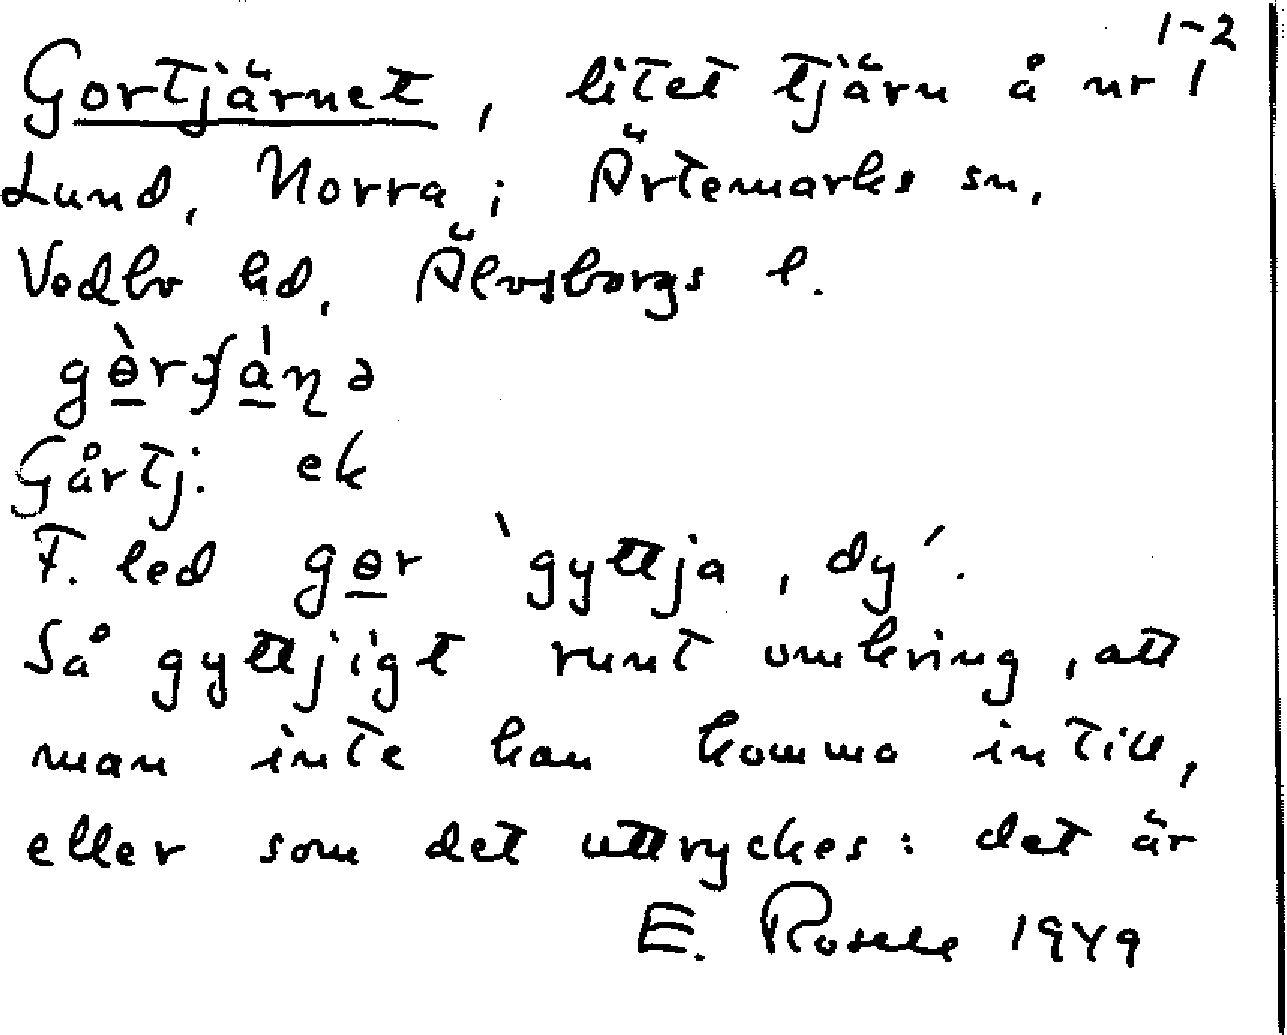 1-2
Gortjärnet, litet tjärn å nr 1
Lund, Norra; Ärtemarks sn,
Vedbo hd, Älvsborgs l.
Gårtj. ek
F. led gɵr `gyttja, dy´.
Så gyttjigt runt omkring, att
man inte kan komma intill,
eller som det uttryckes: det är
E. Rosell 1949